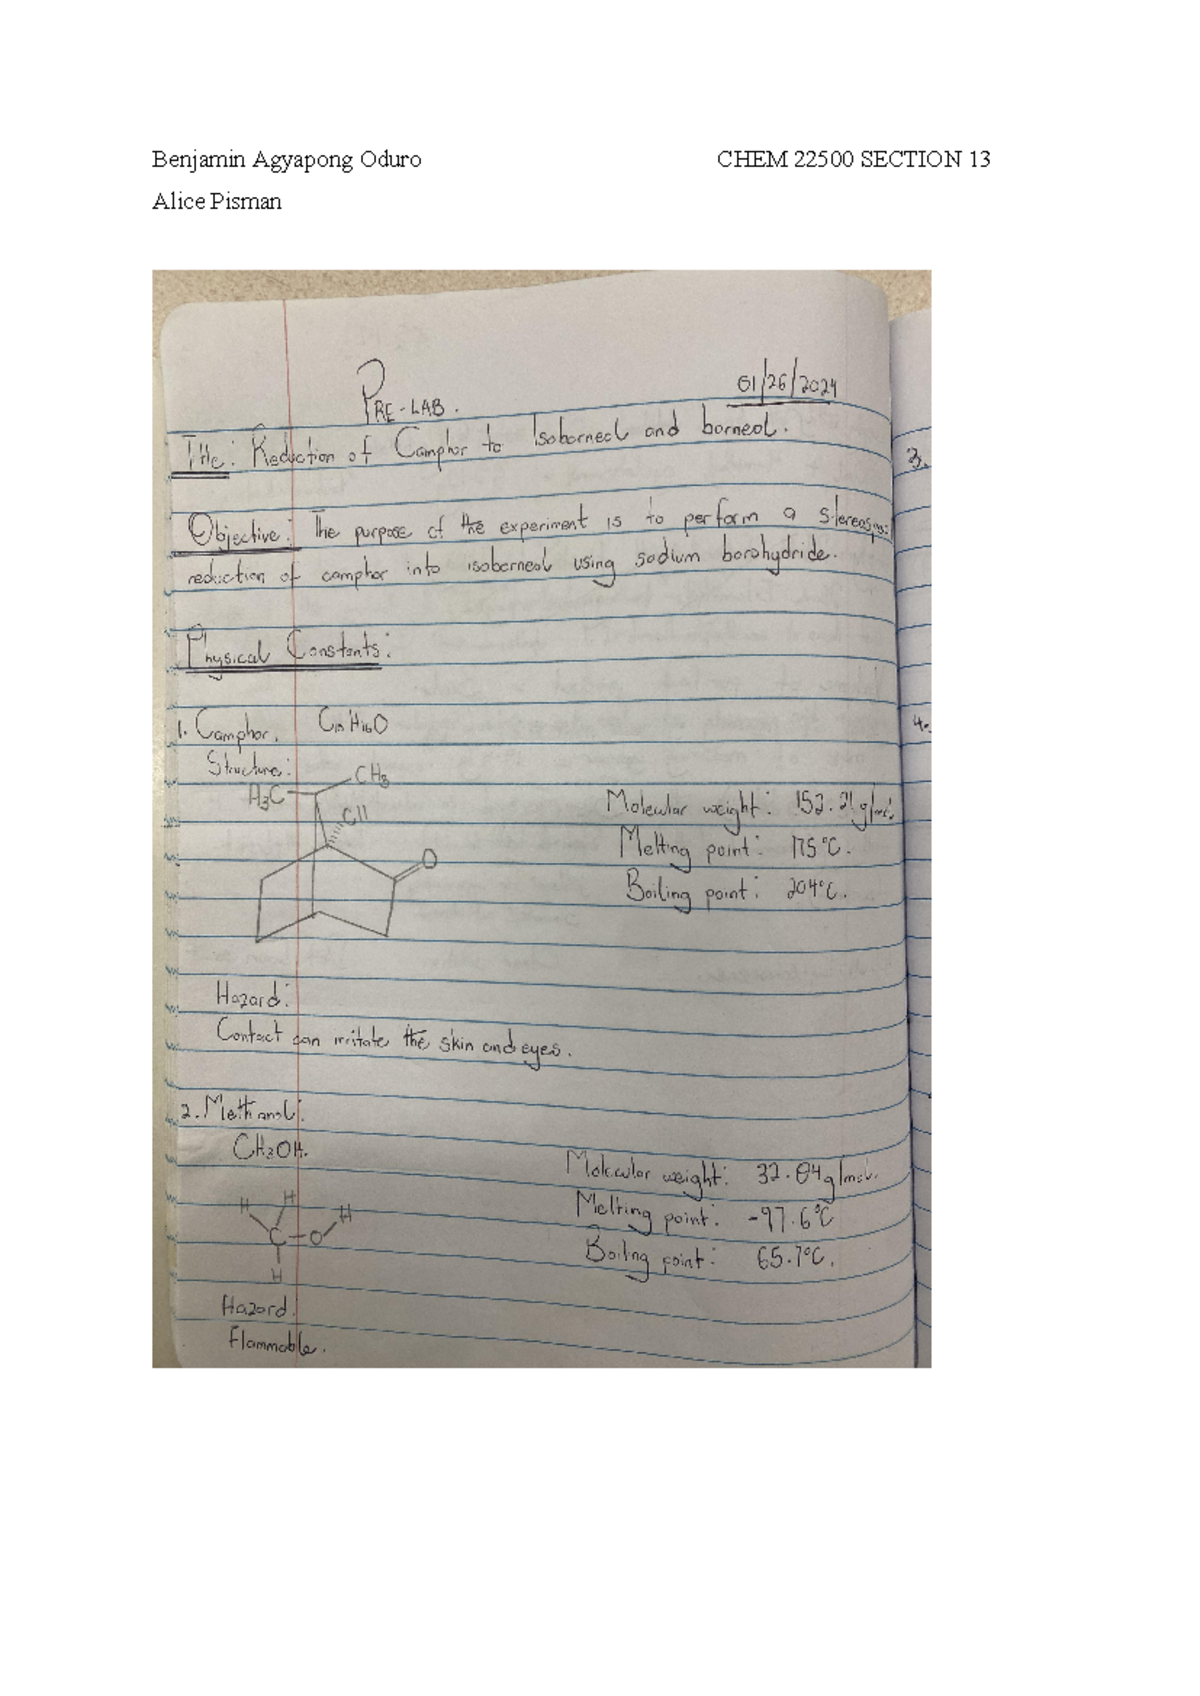 Benjamin Agyapong Oduro CHEM 22500 SECTION 13
Alice Pisman
01/26/2024
PRE-LAB.
Title: Reduction of Camphor to Isoborneol and borneol.
Objective: The purpose of the experiment is to perform a
reduction of camphor into isoborneol using sodium borohydride.
Physical Constants:
1. Camphor. C10H16O
Structure:
CH3
H3C
O
Molecular weight: 152.21g/mol.
Melting point: 175°C.
Boiling point: 204°C.
Hazard:
Contact can irritate the skin and eyes.
2. Methanol:
CH3OH.
Molecular weight: 32.04g/mol.
Melting point: -97.6°C
Boiling point: 65.7°C.
H H
H
C-O
H
Hazard.
Flammable.
3.
4.